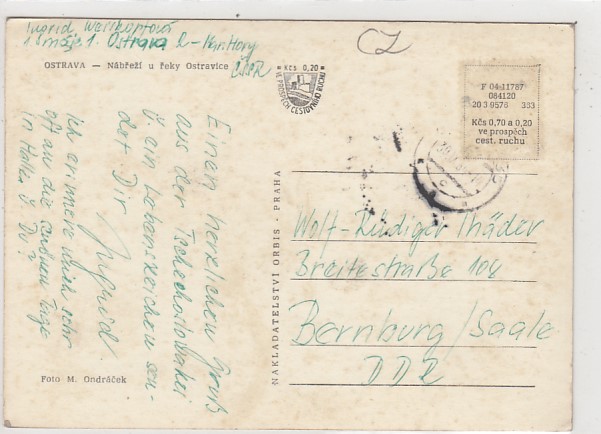 Ingrid Werkhoptová
1 máje 1. Ostrava 2 - Mar. Hory
ČSSR
CZ
OSTRAVA — Nábřeží u řeky Ostravice
Kčs 0,20
VE PROSPĚCH CESTOVNÍHO RUCHU
F 04-11787
084120
20 3 9576 333
Kčs 0,70 a 0,20
ve prospěch
cest. ruchu
Einen herzlichen Gruß
aus der Tschechoslowakei
u. ein Lebenszeichen sen-
det Dir
Ingrid.
Ich erinnere mich sehr
oft an die schönen Tage
in Halle. U. Du?
Wolf-Rüdiger Thäder
Breitestraße 108
Bernburg/Saale
DDR
NAKLADATELSTVÍ ORBIS - PRAHA
Foto M. Ondráček